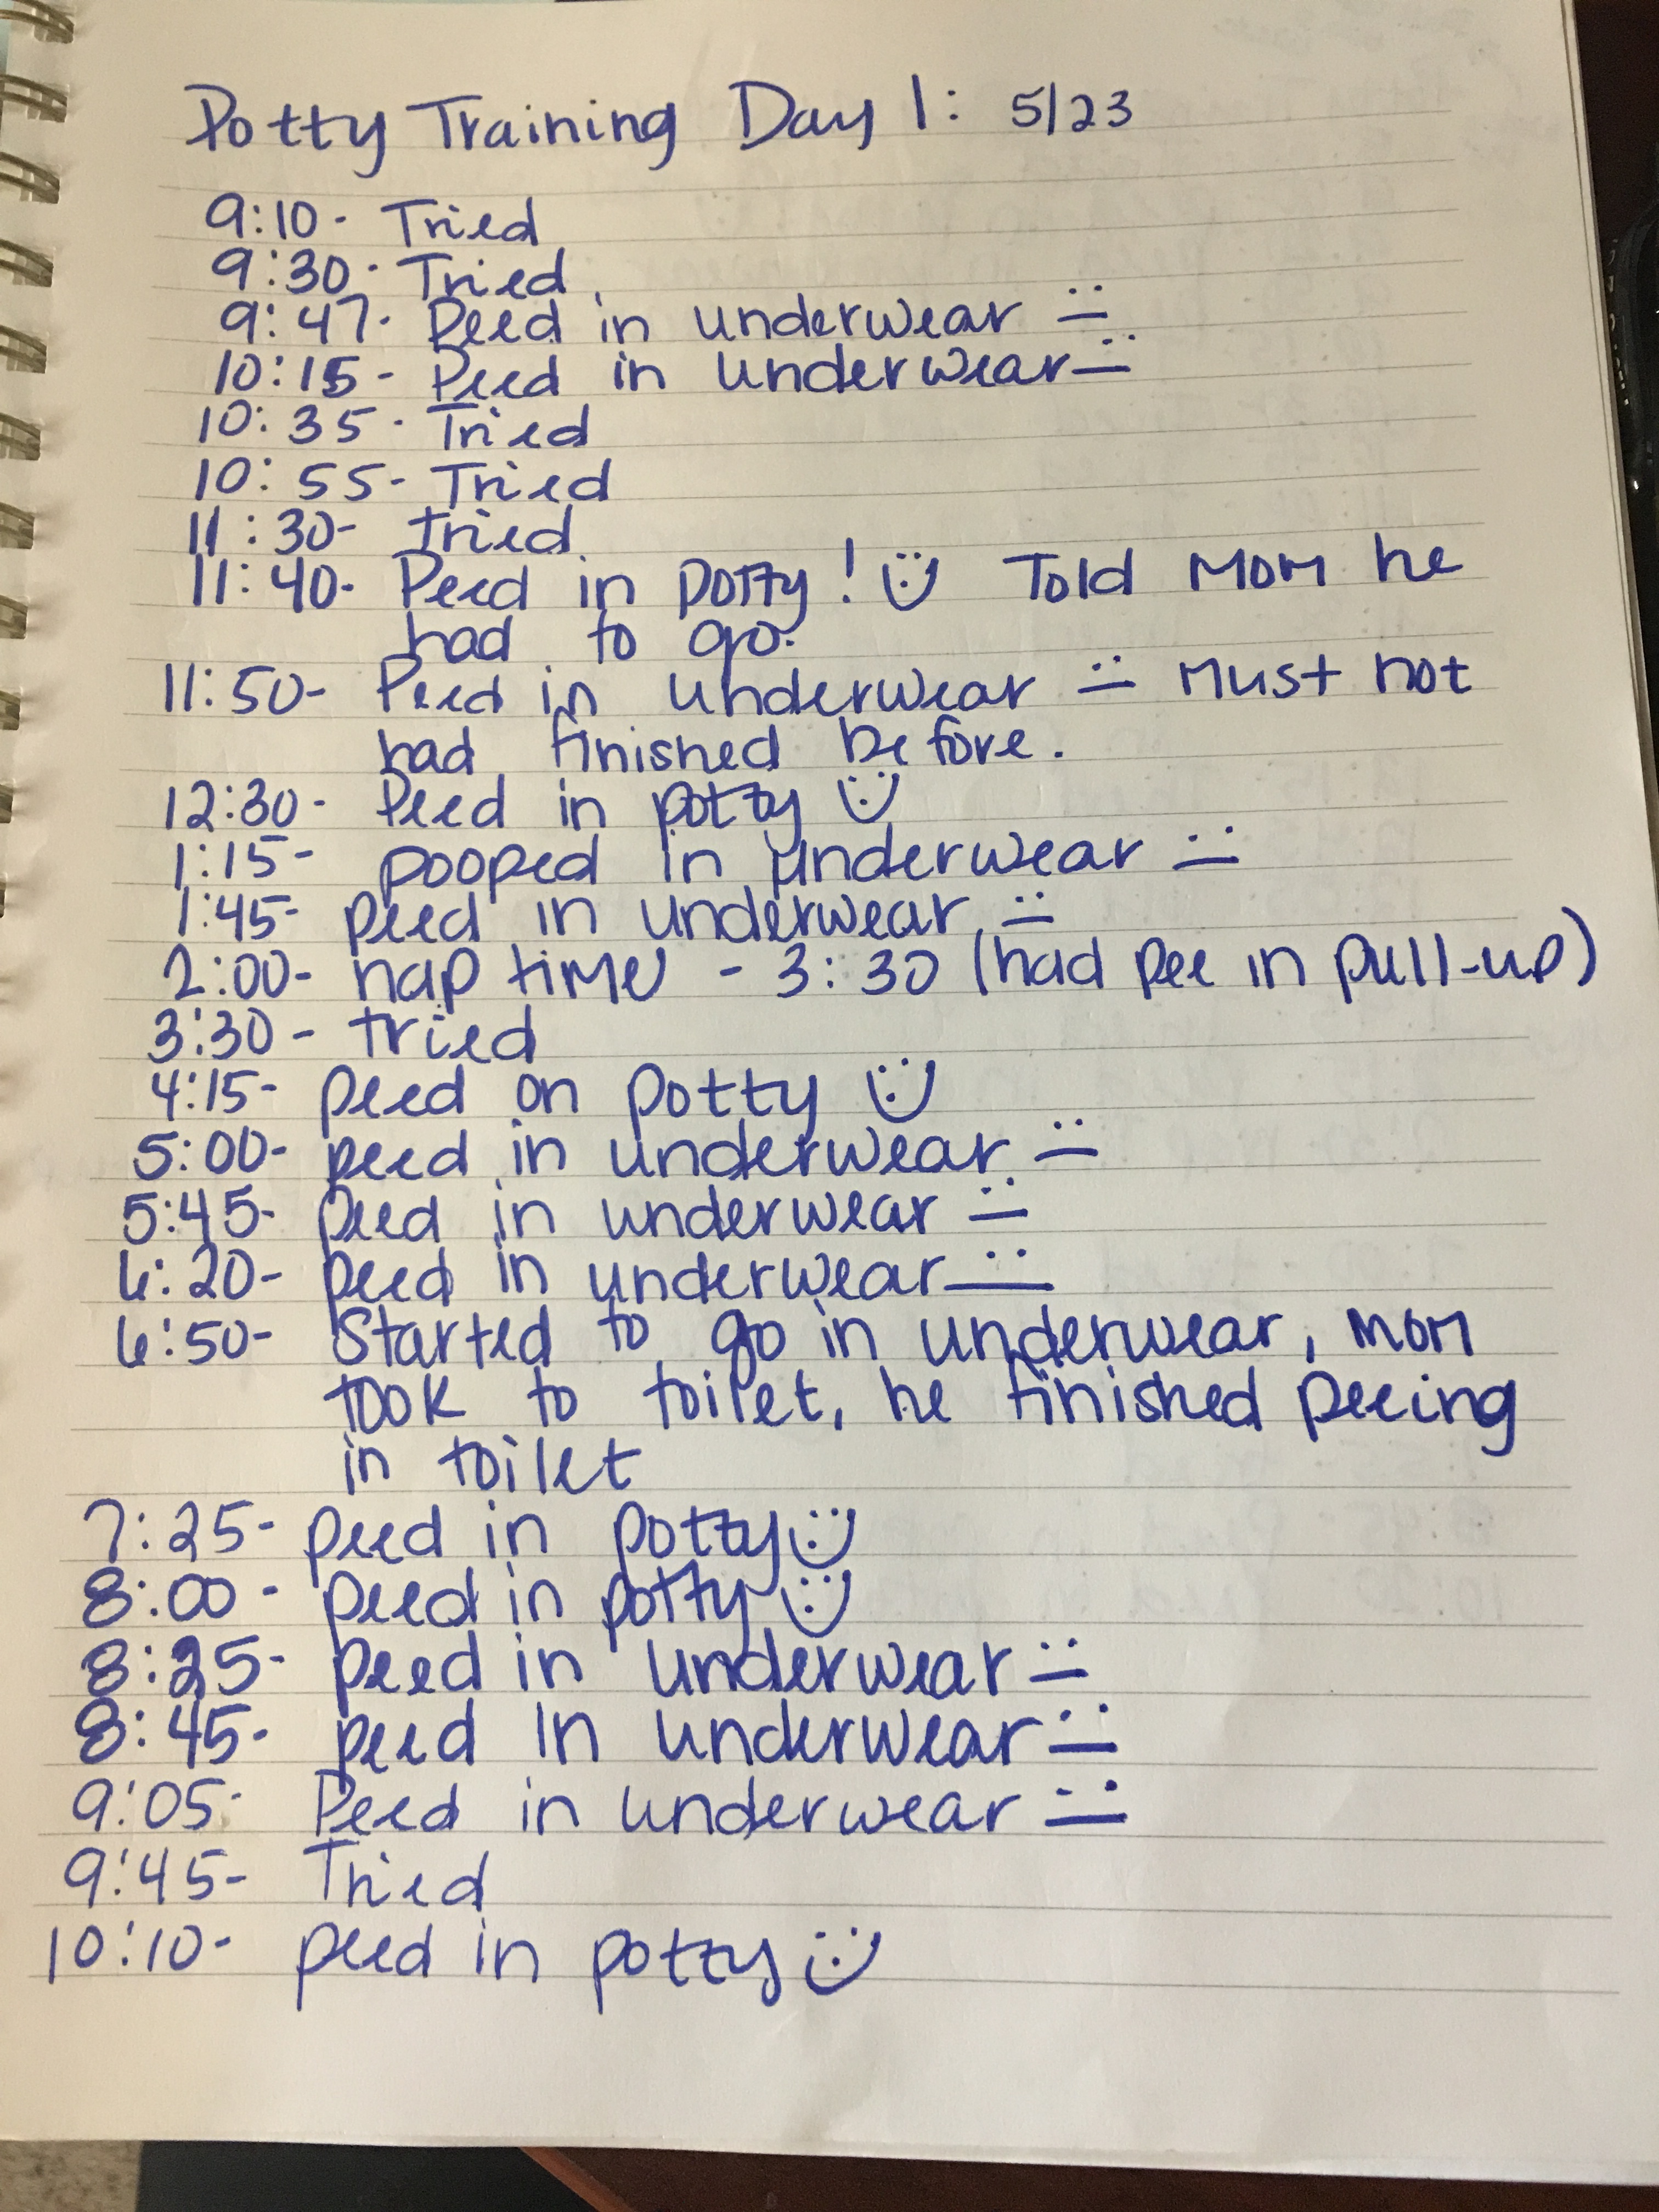 Potty Training Day 1: 5/23
9:10- Tried
9:30- Tried
9:47- Peed in underwear
10:15- Peed in underwear
10:35- Tried
10:55- Tried
11:30- Tried
11:40- Peed in potty! Told Mom he
had to go.
11:50- Peed in underwear Must not
had finished before.
12:30- Peed in potty
1:15- pooped in underwear
1:45- peed in underwear
2:00- nap time - 3:30 (had pee in pull-up)
3:30- tried
4:15- peed on potty
5:00- peed in underwear
5:45- peed in underwear
6:20- peed in underwear
6:50- Started to go in underwear, mom
took to toilet, he finished peeing
in toilet
7:25- peed in potty
8:00- peed in potty
8:25- peed in underwear
8:45- peed in underwear
9:05- Peed in underwear
9:45- Tried
10:10- peed in potty